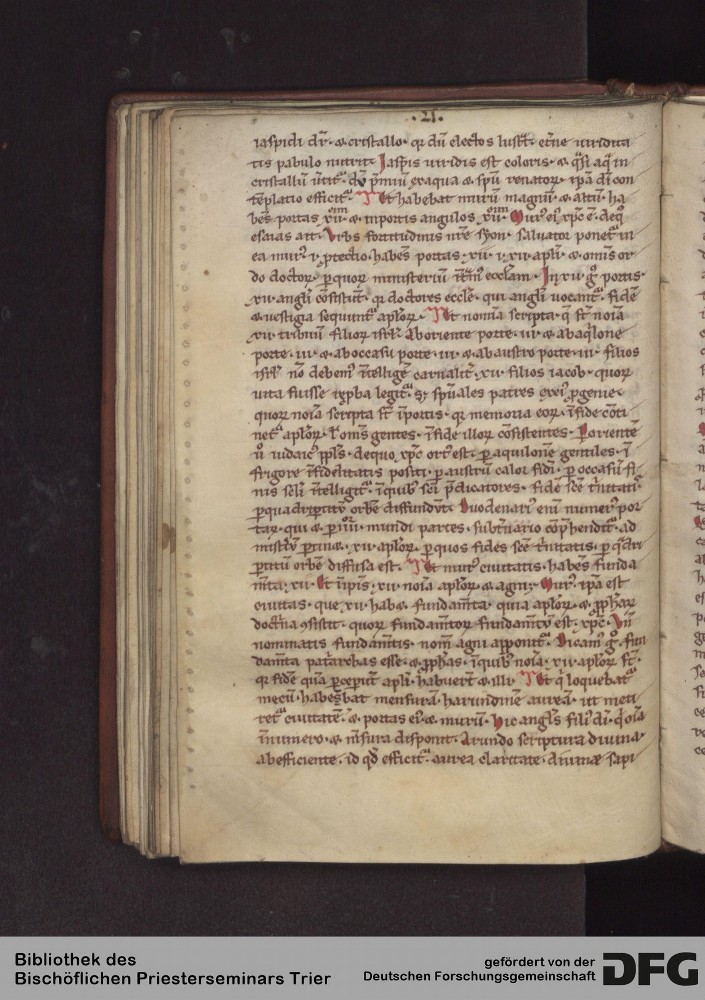 .21.
iaspidi dr̄. & cristallo. qr dū electos lust̄. et̄ne uiridita
tis pabulo nutrit. Jasp̄is uiridis est coloris. & q̄si aq̄ in
cristallū
templatio efficit̄. Et habebat murū magnū. & altū. ha
bēs portas xii. & in portis angulos xii. Mur᾽ ei᾽ xp̄c ē. de q̄
esaias ait. Vrbs fortitudinis nr̄e syon. saluator ponet̄ in
ea mur᾽ & p̱tectio. habēs portas. xii. i. xii. apl̄i. & om̄is or
do doctoꝝ. p̱ quoꝝ ministeriū ecclam. In xii. g̊ portis.
xii. angl̄i cōsistūt. qr doctores eccle. qui angl̄i uocant̄. fidē
& uestigia sequunt̄ apl̄oꝝ. Et nomīa scripta. q̄ st̄ noīa
xii. tribuū filioꝝ isrl̄. Ab oriente porte. iii. & ab aq̄lone
porte. iii. & ab occasu porte. iii. & ab austro porte. iii. filios
isrl̄ nō debem᾽ ītelligē carnalit̄. xii. filios iacob. quoꝝ
uita fuisse legit̄. sꝫ sp̄uales patres p̱genie.
quoꝝ noīa scripta st̄ ī portis. qr memoria eoꝝ. ī fide cōti
net̄ apl̄oꝝ. om̄s gentes. ī fide illoꝝ cōsistentes. Per orientē
ů iudaic᾽ ppl̄s. de quo xp̄c ort᾽ est. p̱ aq̄lonē gentiles. ī
frigore īfidelitatis positi. p̱ austrū calor fidi. p̱ occasū fi
nis scl̄i ītelligit̄. ī quib᾽ sc̄i p̄dicatores. fidē sc̄e t̄nitatis
p̱ quadriptitū orbē diffundūt. Duodenari᾽ enī numer᾽ por
taꝝ. qui & p̱ iiii. mundi partes. sub t̄nario cōp̄hendit̄. ad
mistīū p̱tinꝫ. xii. apl̄oꝝ. p̱ quos fides sc̄e t̄nitatis. p̱ q̄dri
p̱titū orbē diffusa est. Et mur᾽ ciuitatis. habēs funda
m̄ta. xii. Et in ip̄is. xii. noīa apl̄oꝝ. & agni. Mur᾽ ip̄a est
ciuitas. que xii. habꝫ. fundam̄ta. quia apl̄oꝝ. & p̱phaꝝ
doct̄na ꝯsistit. quoꝝ fundam̄toꝝ fundam̄tū est. xp̄c. Vn̄
nominatis fundam̄tis. nom̄ agni apponit̄. Dicam᾽ g̊. fun
dam̄ta pat̄archas esse. & p̱phas. ī quib᾽ noīa. xii. apl̄oꝝ st̄.
qr fidē quā p̱ceperūt apl̄i. habuerūt & illi. Et q̄ loquebat̄
mecū. habebat mensurā. harundinē aureā. ut meti
ret̄ ciuitatē. & portas ei᾽. & murū. Hic angl̄s fili᾽ dī. q̄ oīa
ī numero. & m̄sura disponit. Arundo scriptura diuina.
ab efficiente. id qd̄ efficit̄. aurea claritate. diuinæ sapi
Bibliothek des
Bischöflichen Priesterseminars Trier
gefördert von der
Deutschen Forschungsgemeinschaft
DFG